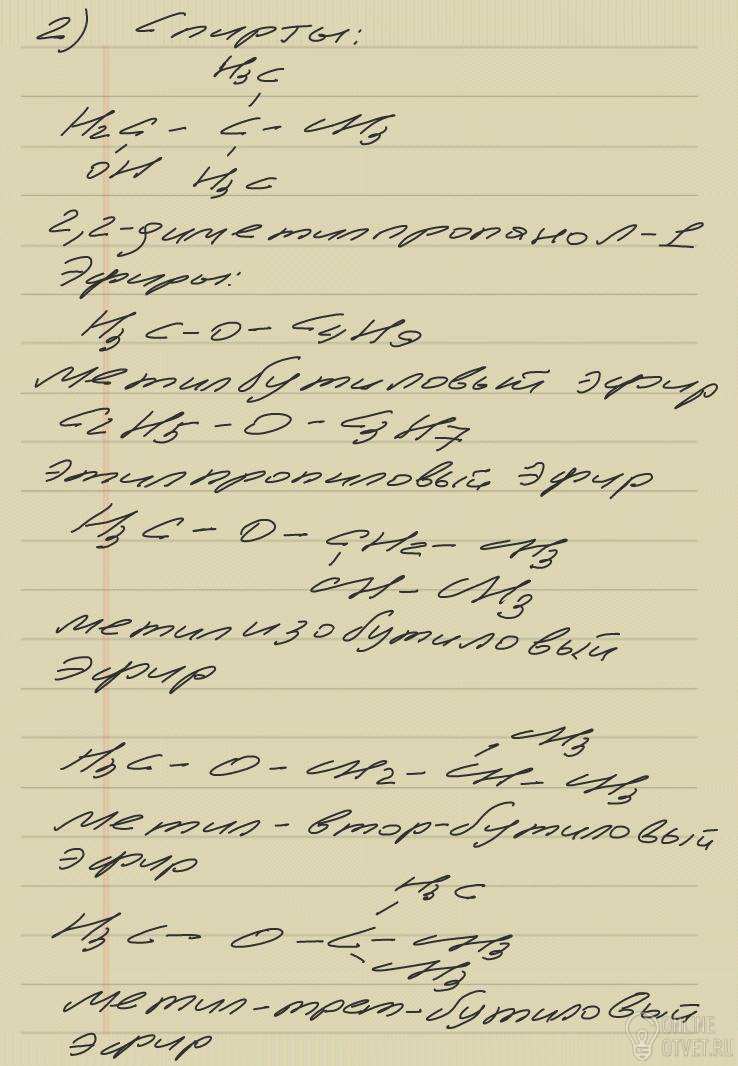 2) Спирты:
H3C
H2C - C - CH3
OH H3C
2,2-диметилпропанол-1
Эфиры:
H3C-O-C4H9
метилбутиловый эфир
C2H5-O-C3H7
Этилпропиловый Эфир
H3C-O-CH2-CH3
CH-CH3
метилизобутиловый
Эфир
CH3
H3C-O-CH2-CH-CH3
метил-втор-бутиловый
Эфир
H3C
H3C-O-C-CH3
CH3
метил-трет-бутиловый
Эфир
ONLINE
OTVET.RU